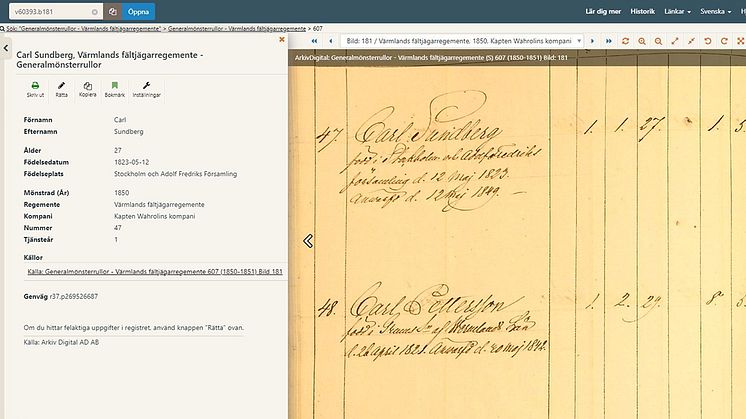 v60393.b181
Öppna
Lär dig mer Historik Länkar Svenska
Sök: "Generalmönsterrullor - Värmlands fältjägarregemente" > Generalmönsterrullor - Värmlands fältjägarregemente > 607
Bild: 181 / Värmlands fältjägarregemente, 1850, Kapten Wahrolins kompani
ArkivDigital: Generalmönsterrullor - Värmlands fältjägarregemente (S) 607 (1850-1851) Bild: 181
Carl Sundberg, Värmlands fältjägarregemente -
Generalmönsterrullor
Skriv ut Rätta Kopiera Bokmärk Inställningar
Förnamn Carl
Efternamn Sundberg
Ålder 27
Födelsedatum 1823-05-12
Födelseplats Stockholm och Adolf Fredriks Församling
Mönstrad (År) 1850
Regemente Värmlands fältjägarregemente
Kompani Kapten Wahrolins kompani
Nummer 47
Tjänsteår 1
Källor
Källa: Generalmönsterrullor - Värmlands fältjägarregemente 607 (1850-1851) Bild 181
Genväg r37.p269526687
Om du hittar felaktiga uppgifter i registret, använd knappen "Rätta" ovan.
Källa: Arkiv Digital AD AB
47. Carl Sundberg 1. 1. 27. 1.
född i Stockholm och Adolf Fredriks
församling d. 12 Maj 1823.
d. 12 Maj 1849.
48. Carl Pettersson 1. 2. 29. 8.
född i
d. 26 April 1821. d. 20 Maj 1842.